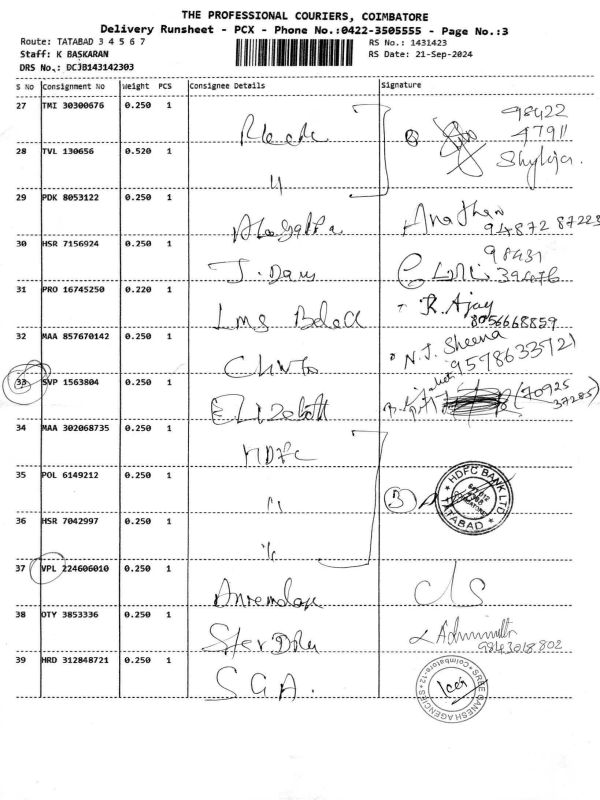 THE PROFESSIONAL COURIERS, COIMBATORE
Delivery Runsheet - PCX - Phone No.:0422-3505555 - Page No.:3
Route: TATABAD 3 4 5 6 7
RS No.: 1431423
Staff: K BASKARAN
RS Date: 21-Sep-2024
DRS No.: DCJB143142303
S No Consignment No Weight PCS Consignee Details Signature
27 TMI 30300676 0.250 1 98422
47911
28 TVL 130656 0.520 1 " Shyloja.
29 PDK 8053122 0.250 1 Anathan
94872 87223
30 HSR 7156924 0.250 1 98431
39407b
31 PRO 16745250 0.220 1 Lms R. Ajay
8056668859
32 MAA 857670142 0.250 1 N.J. Sheena
9578633721
33 SVP 1563804 0.250 1 Elizabeth (70925
37285)
34 MAA 302068735 0.250 1 HDFC
35 POL 6149212 0.250 1 " 3 HDFC BANK LTD
TATABAD
36 HSR 7042997 0.250 1 "
37 VPL 224606010 0.250 1
38 OTY 3853336 0.250 1
9843018802
39 HRD 312848721 0.250 1 SGA. SREE GANESH AGENCIES
Coimbatore-12